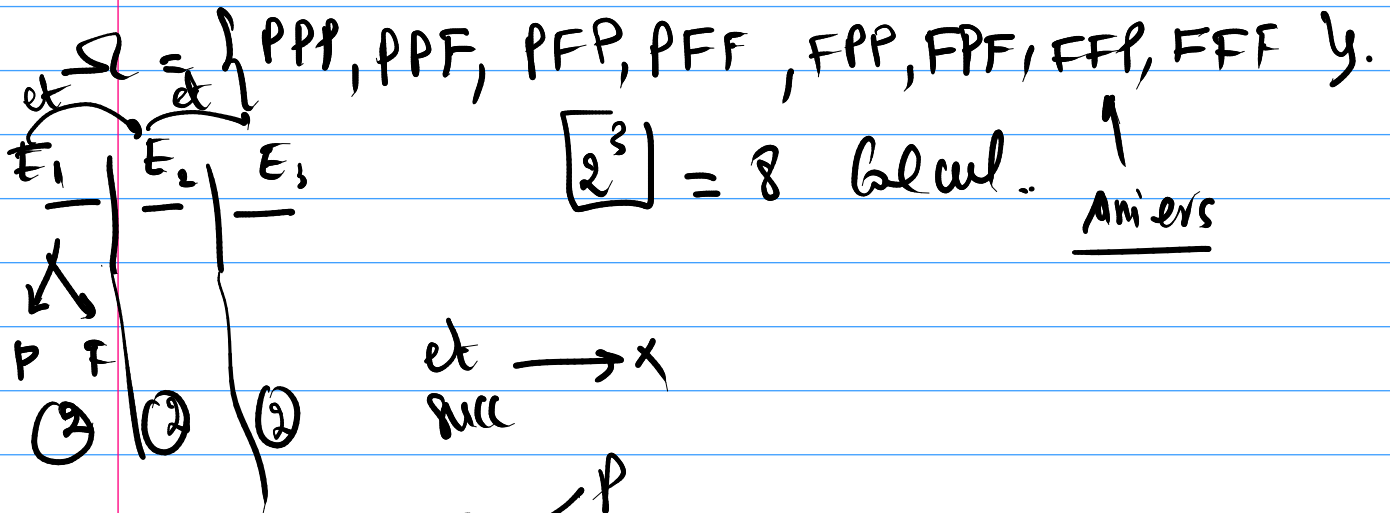 Ω = { PPP, PPF, PFP, PFF, FPP, FPF, FFP, FFF }.
et et
E₁ E₂ E₃ 2³ = 8 Calcul..
P F et → x
② ② ② succ
P